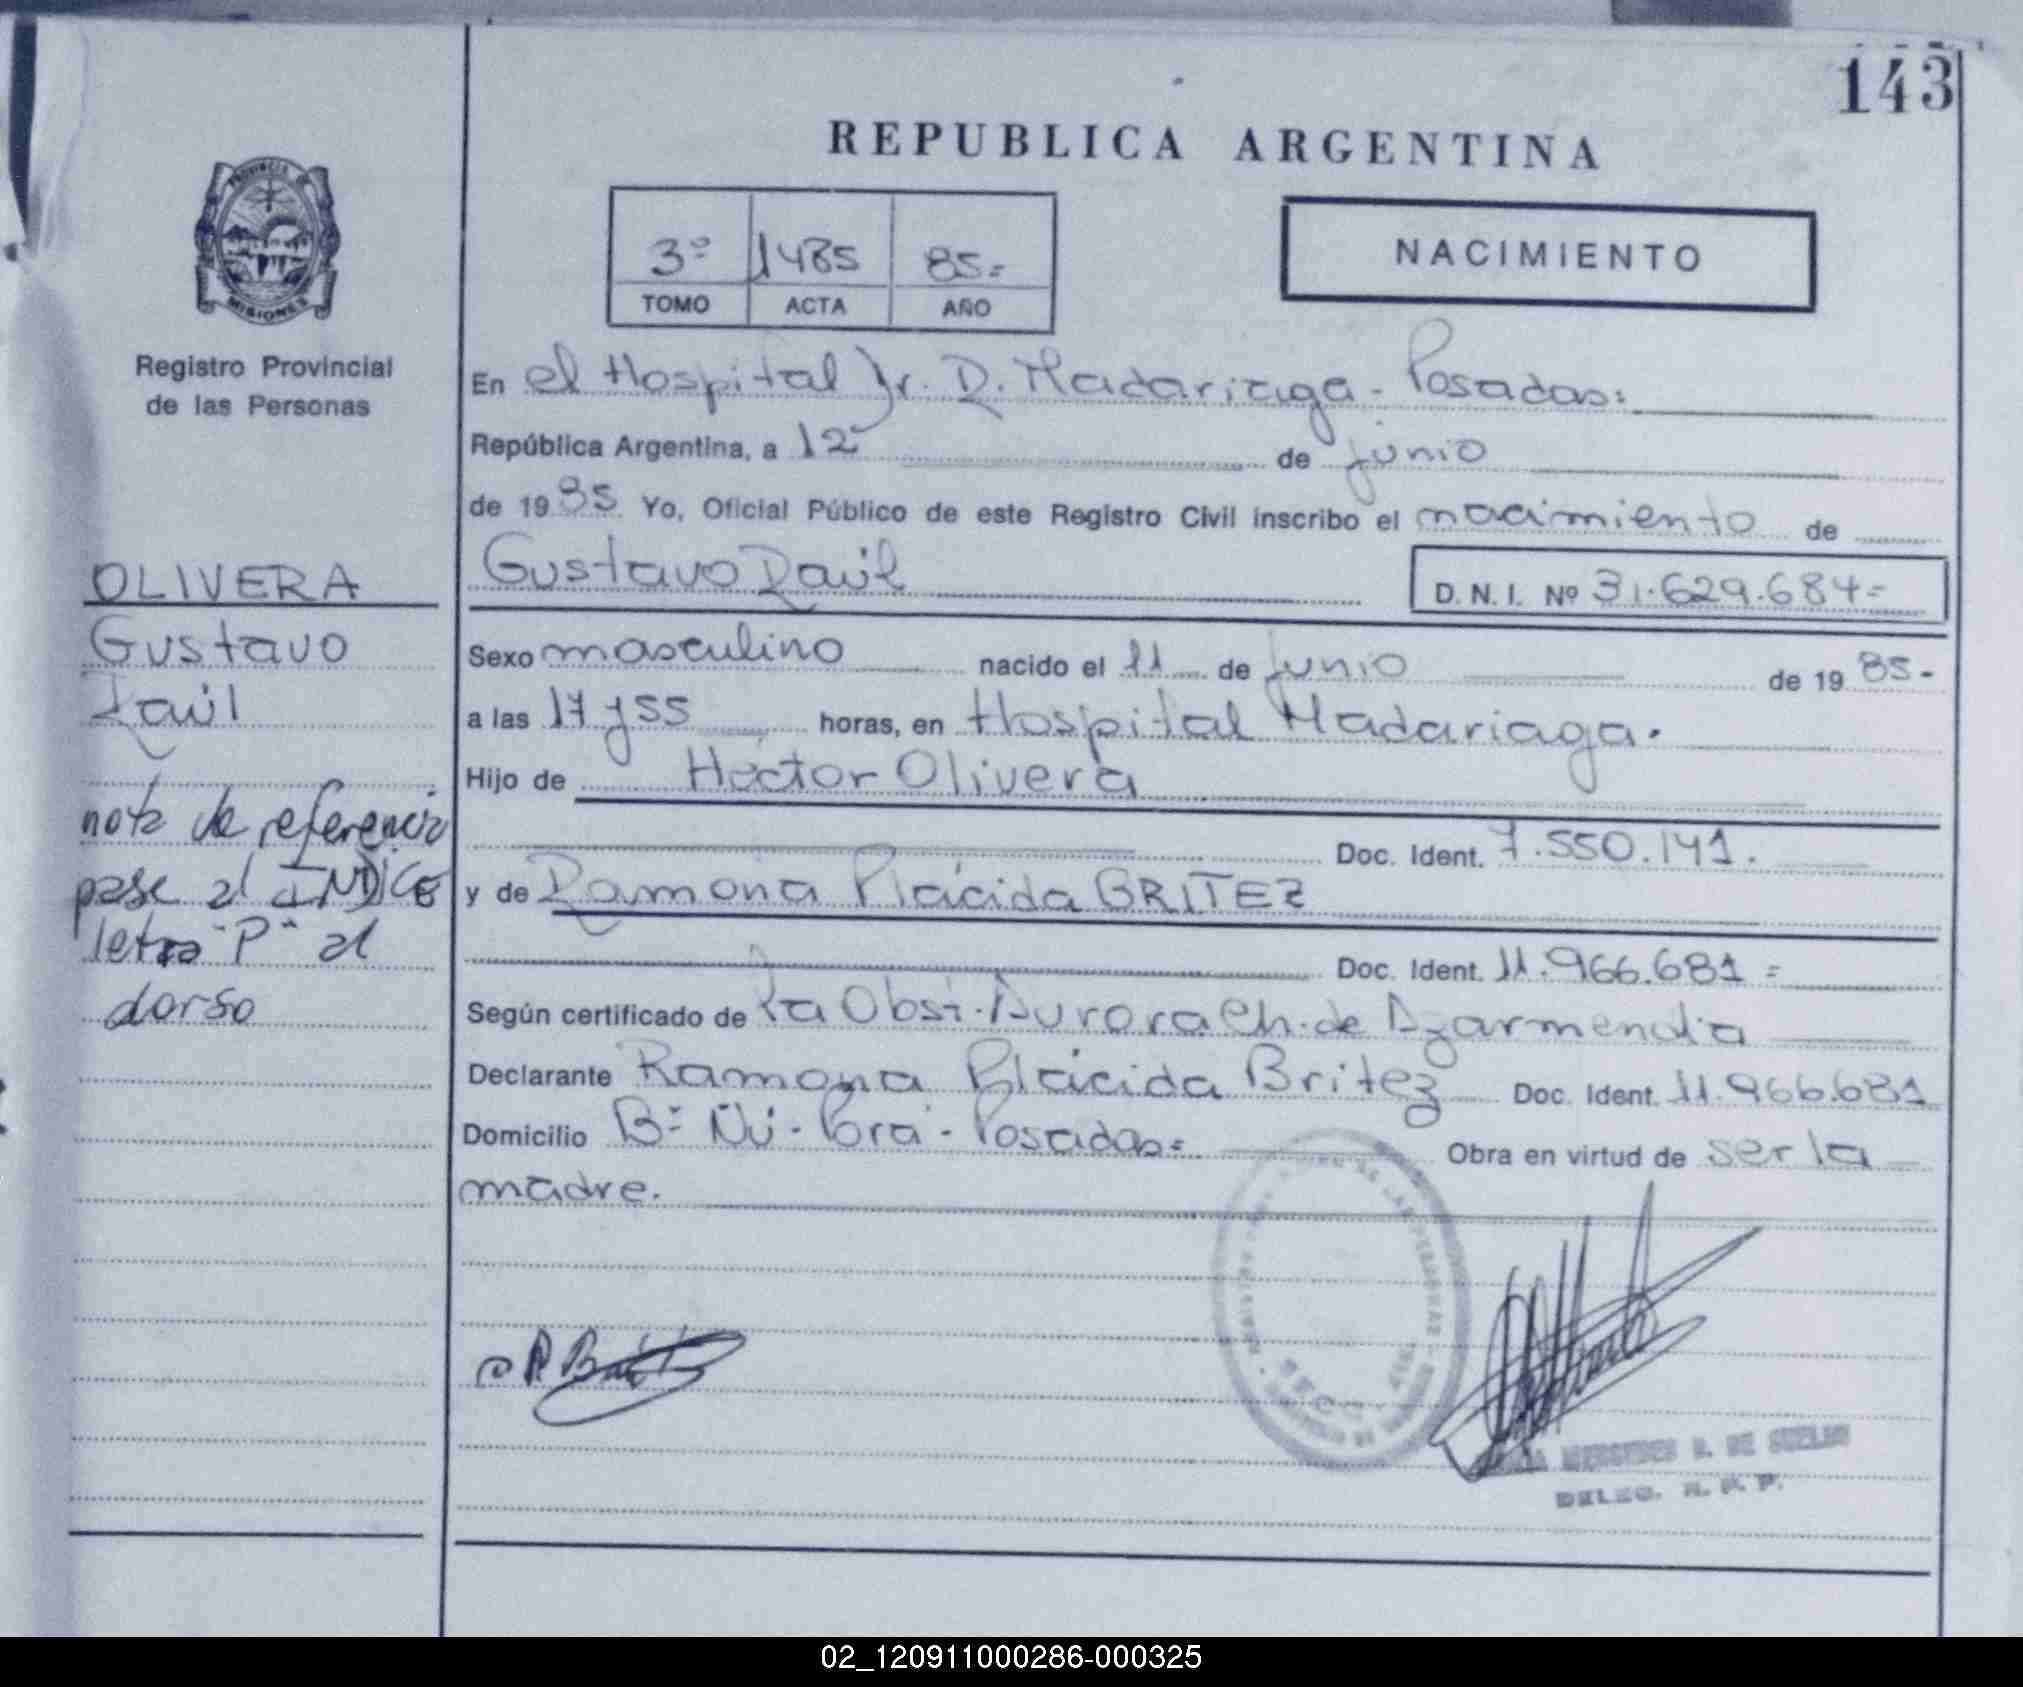 143
REPUBLICA ARGENTINA
PROVINCIA DE
MISIONES
Registro Provincial
de las Personas
3º 1485 85=
TOMO ACTA AÑO
NACIMIENTO
En el Hospital Dr. R. Madariaga - Posadas:
República Argentina, a 12 de junio
de 1985 Yo, Oficial Público de este Registro Civil inscribo el nacimiento de
Gustavo Raúl
D. N. I. Nº 31.629.684=
OLIVERA
Gustavo
Raúl
nota de referencia
pase al INDICE
letra "P" al
dorso
Sexo masculino nacido el 11 de junio de 1985-
a las 17 y 55 horas, en Hospital Madariaga.
Hijo de Héctor Olivera
Doc. Ident. 7.550.141.
y de Ramona Plácida BRITEZ
Doc. Ident. 11.966.681=
Según certificado de la Obst. Aurora Ch. de Azarmendia
Declarante Ramona Plácida Britez Doc. Ident. 11.966.681
Domicilio Bº Ñu-Porá-Posadas= Obra en virtud de ser la
madre.
MERCEDES DE
DELEG. R. P. P.
02_120911000286-000325